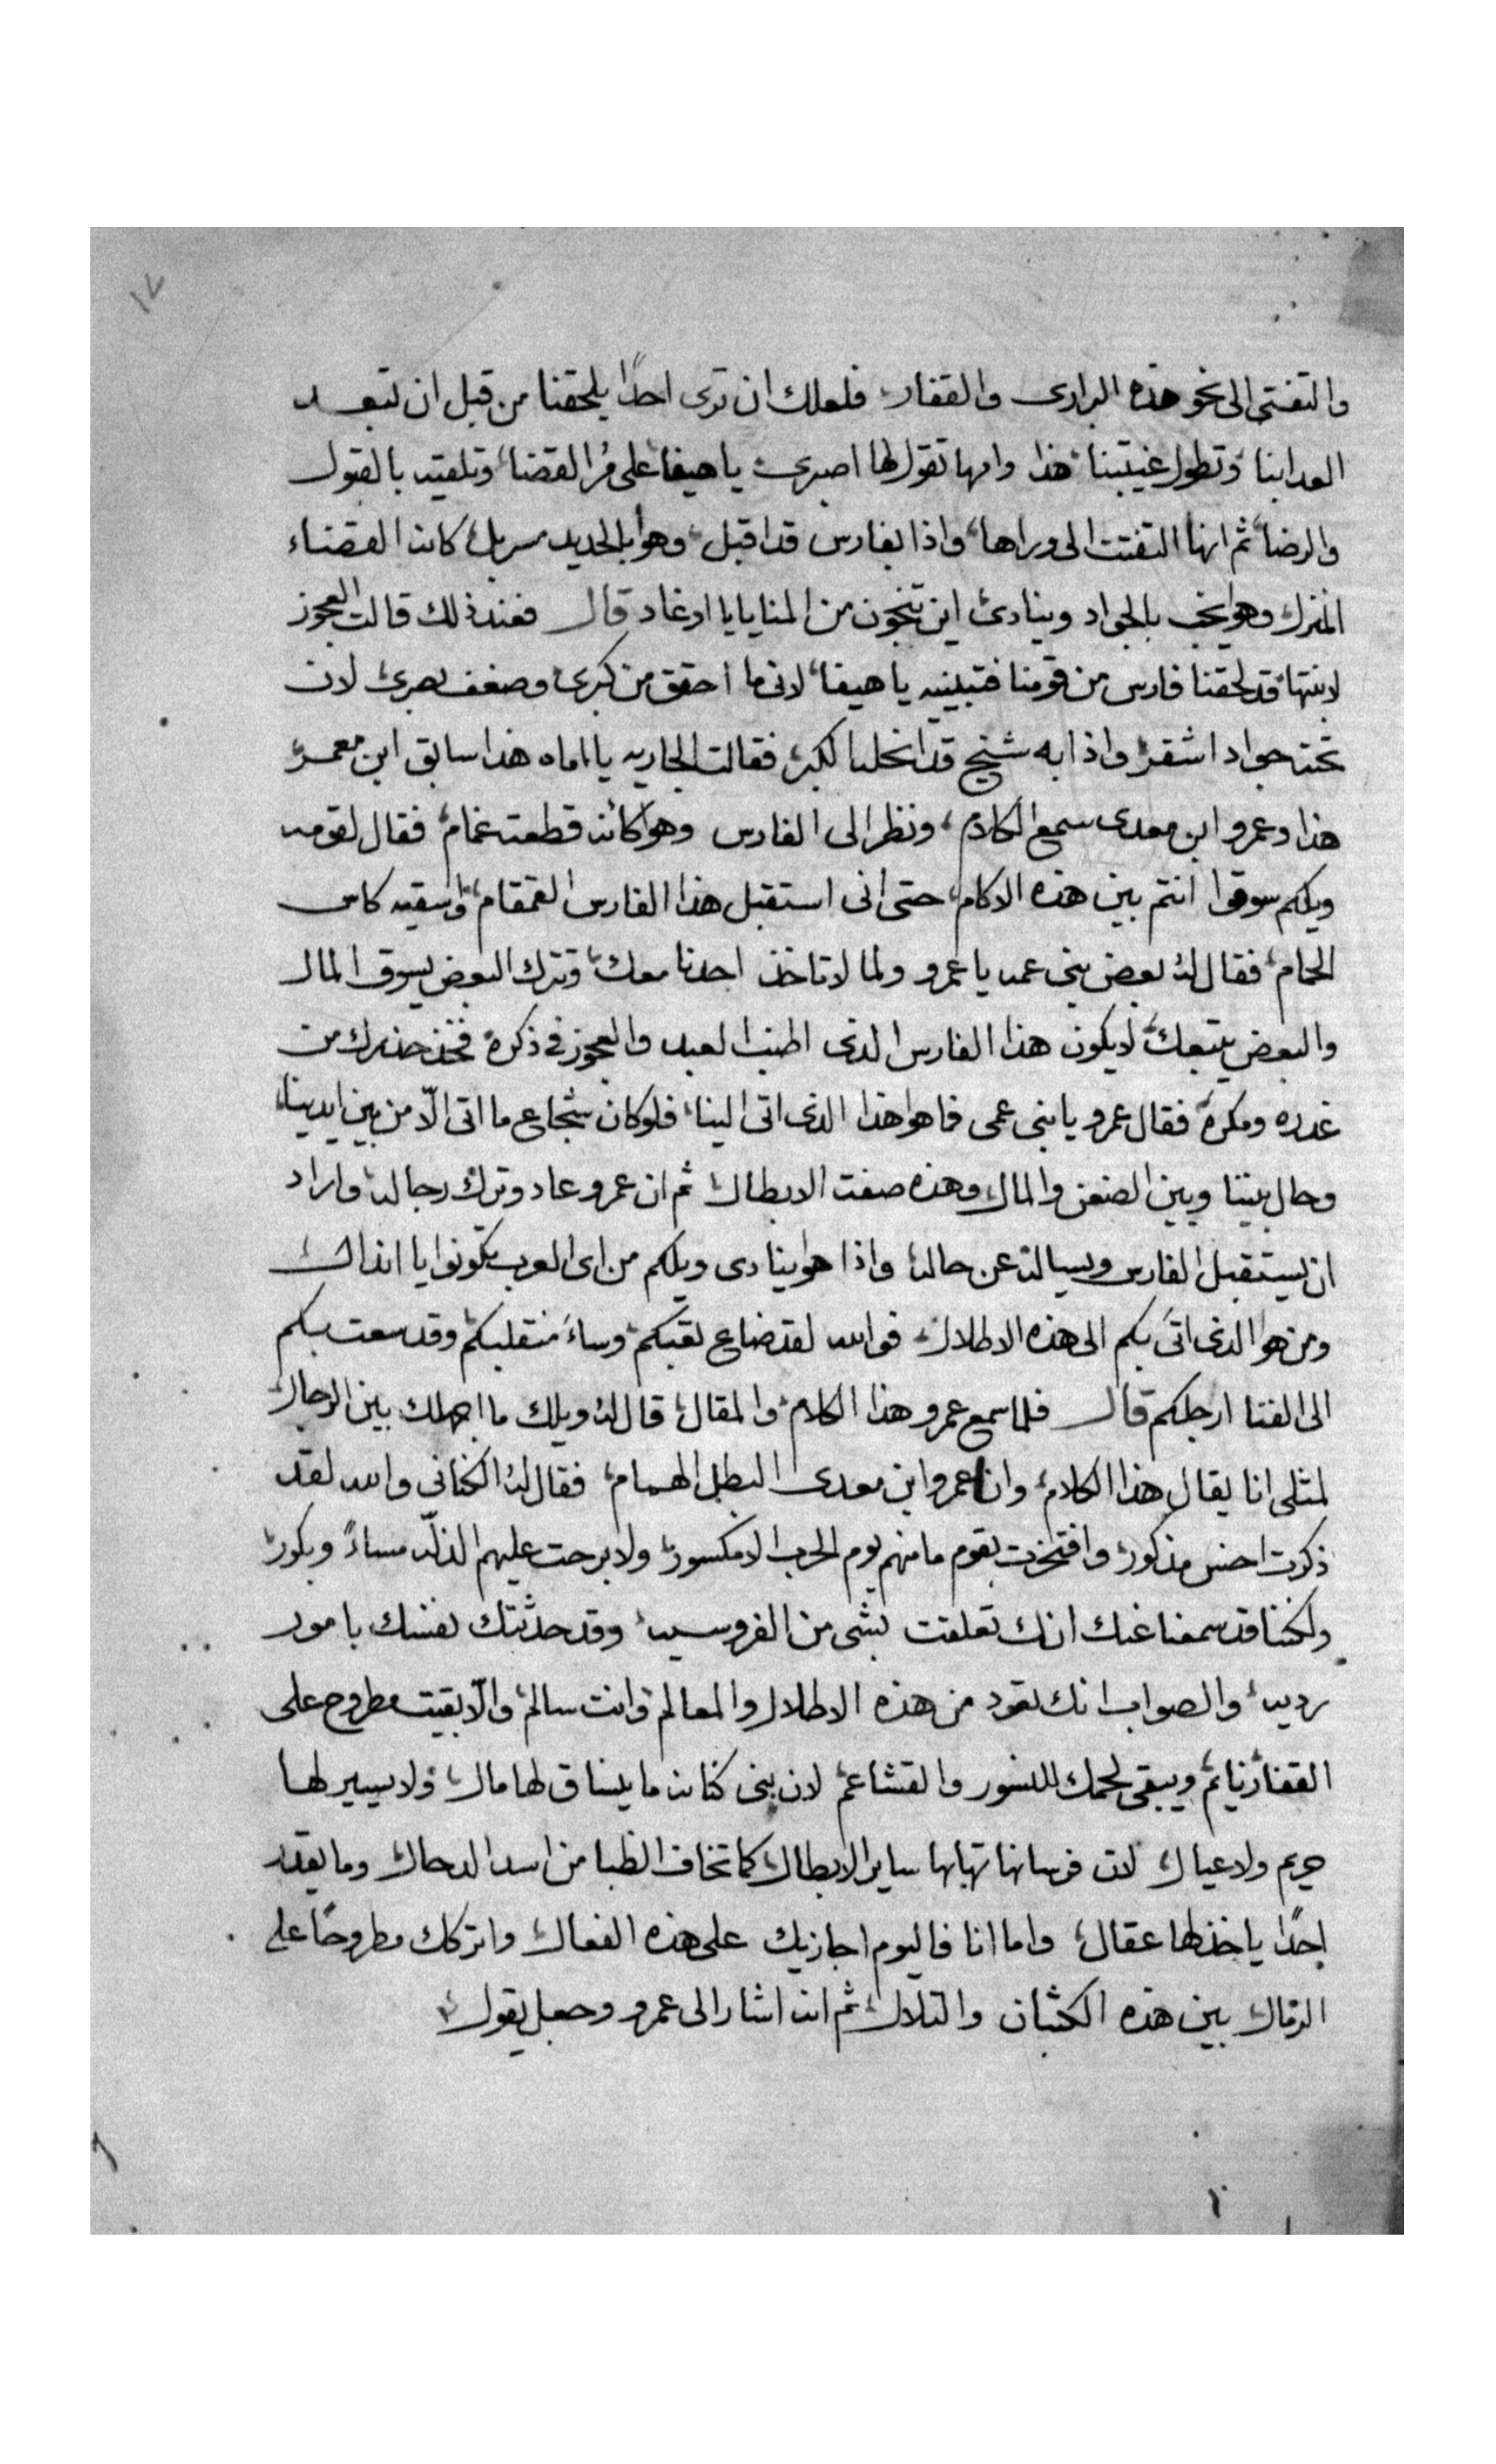 ١٢
والتفتى الى نحو هذه البرارى والقفار فلعلك ان ترى احدًا يلحقنا من قبل ان تبعد
العدا بنا وتطول غيبتنا هذا وامها تقول لها اصبرى يا هيفا على مُر القضا وتلقيه بالقبول
والرضا ثم انها التفتت الى وراها واذا بفارس قد اقبل وهو بالحديد مسربل كانه القضاء
المنزل وهو يخب بالجواد وينادى اين تنجون من المنايا يا اوغاد قال فعند ذلك قالت العجوز
لابنتها قد لحقنا فارس من قومنا فتبينيه يا هيفا لانى ما احقق من كبرى وضعف بصرى لان
تحته جواد اشقر واذا به شيخ قد انحله الكبر فقالت الجاريه يا اماه هذا سابق ابن معمر
هذا وعمرو ابن معدى سمع الكلام ونظر الى الفارس وهو كانه قطعت غمام فقال لقومه
ويلكم سوقوا انتم بين هذه الاكام حتى انى استقبل هذا الفارس القمقام واسقيه كاس
الحمام فقال له بعض بنى عمه يا عمرو ولما لا تاخذ احدنا معك وتترك البعض يسوق المال
والبعض يتبعك لا يكون هذا الفارس الدى اطنب العبد والعجوز فى ذكره فخذ حذرك من
غدره ومكره فقال عمرو يا بنى عمى فما هو هذا الذى اتى الينا فلو كان شجاع ما اتى الّا من بين ايدينا
وحال بيننا وبين الضعن والمال وهذه صفت الابطال ثم ان عمرو عاد وترك رجاله واراد
ان يستقبل الفارس ويساله عن حاله واذا هو ينادى ويلكم من اى العرب تكونوا يا انذال
ومن هو الدى اتى بكم الى هذه الاطلال فوالله لقد ضاع تعبكم وساءَ منقلبكم وقد سعت بكم
الى الفنا ارجلكم قال فلما سمع عمرو هذا الكلام والمقال قال له ويلك ما اجهلك بين الرجال
لمثلى انا يقال هذا الكلام وانا عمرو ابن معدى البطل الهمام فقال له الكنانى والله لقد
ذكرت احس مذكور وافتخرت بقوم ما منهم يوم الحرب الا مكسور ولا برحت عليهم الذلّه مساءً وبكور
ولكننا قد سمعنا عنك انك تعلقت بشى من الفروسيه وقد حدثتك نفسك بامور
رديه والصواب انك تعود من هذه الاطلال والمعالم وانت سالم والّا بقيت مطروح على
القفار نايم ويبقى لحمك للنسور والقشاعم لان بنى كنانه ما ينساق لها مال ولا يسير لها
حريم ولا عيال لان فرسانها تهابها ساير الابطال كما تخاف الظبا من اسد الدحال وما يقدر
احدًا ياخذ لها عقال واما انا فاليوم اجازيك على هذه الفعال واتركك مطروحًا على
الرمال بين هذه الكثبان والتلال ثم انه اشار الى عمرو وجعل يقول